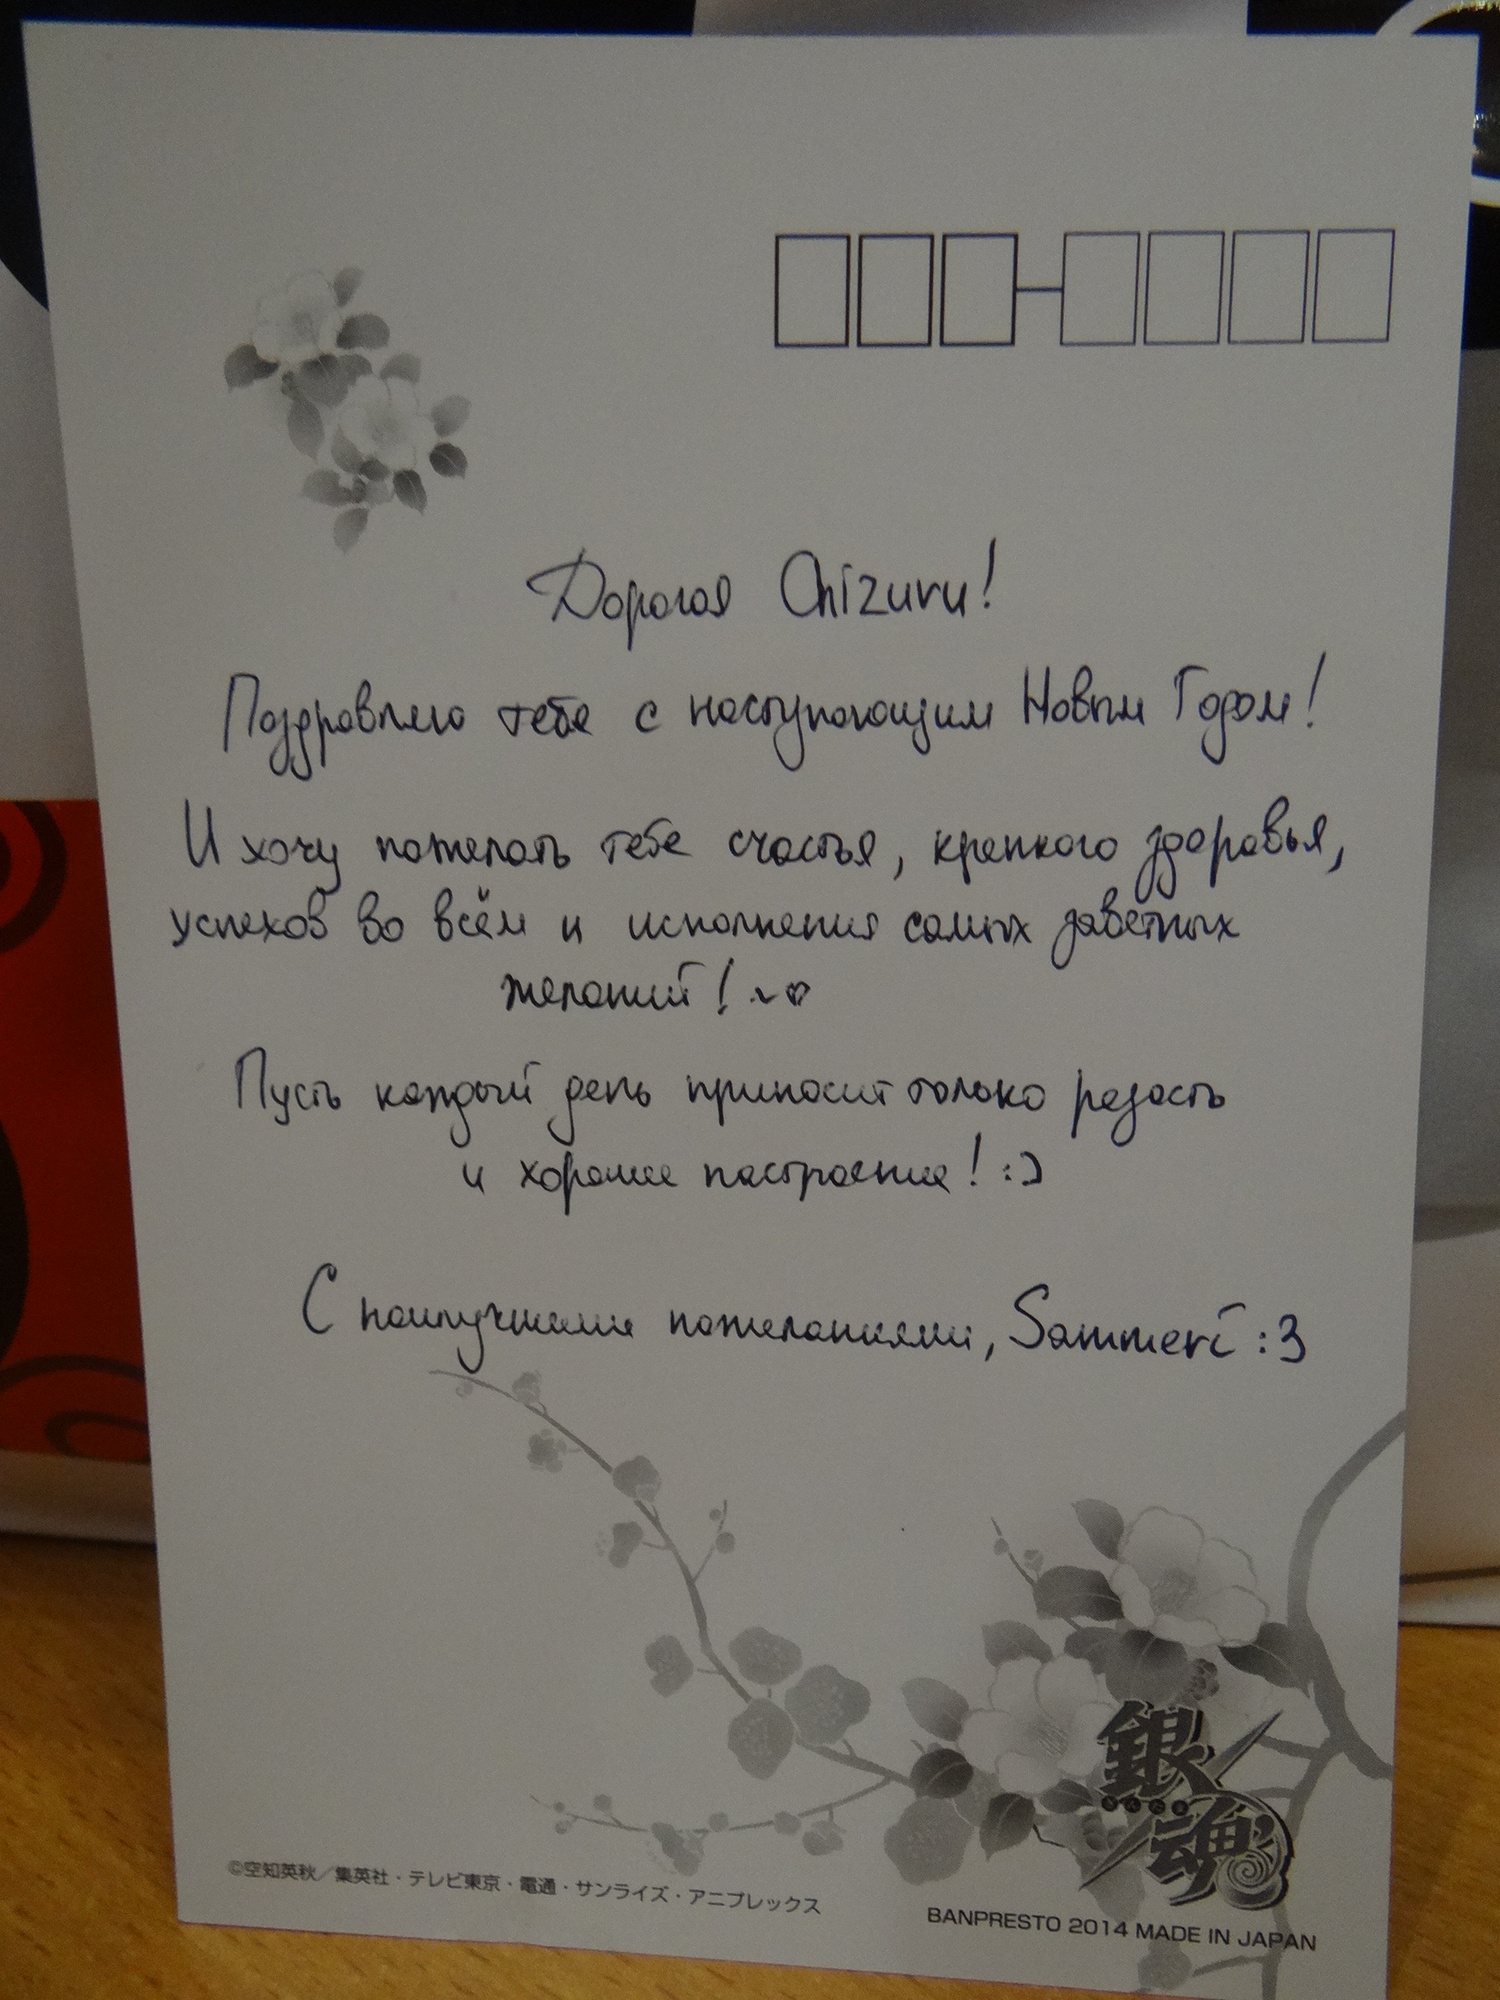 Дорогая Chizuru!
Поздравляю тебя с наступающим Новым Годом!
И хочу пожелать тебе счастья, крепкого здоровья,
успехов во всём и исполнения самых заветных
желаний! ~♡
Пусть каждый день приносит только радость
и хорошее настроение! :)
С наилучшими пожеланиями, Sammeri :3
銀魂
©空知英秋／集英社・テレビ東京・電通・サンライズ・アニプレックス
BANPRESTO 2014 MADE IN JAPAN